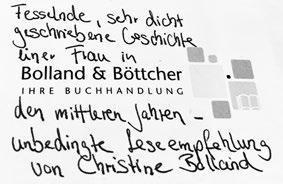 Fesselnde, sehr dicht
geschriebene Geschichte
einer Frau in
Bolland & Böttcher
IHRE BUCHHANDLUNG
den mittleren Jahren –
unbedingte Leseempfehlung
von Christine Bolland